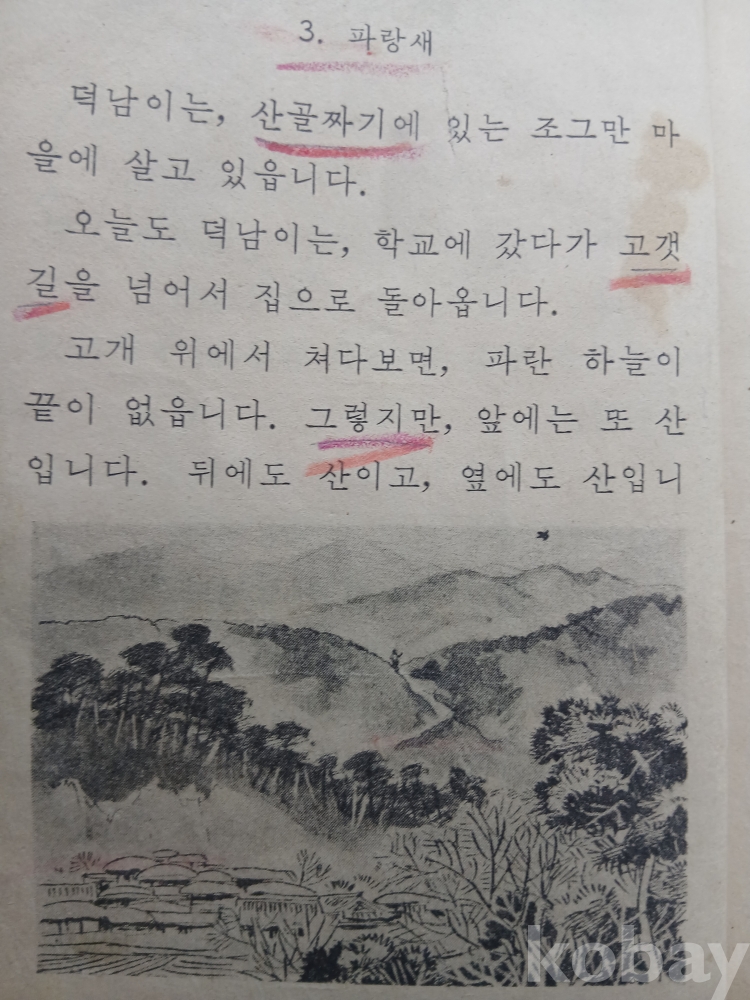 3. 파랑새
덕남이는, 산골짜기에 있는 조그만 마
을에 살고 있읍니다.
오늘도 덕남이는, 학교에 갔다가 고갯
길을 넘어서 집으로 돌아옵니다.
고개 위에서 쳐다보면, 파란 하늘이
끝이 없읍니다. 그렇지만, 앞에는 또 산
입니다. 뒤에도 산이고, 옆에도 산입니
kobay